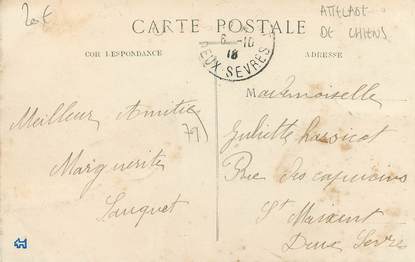 20€
ATTELAGE
DE CHIENS
CARTE POSTALE
CORRESPONDANCE
ADRESSE
6 -10
18
DEUX SEVRES
Mademoiselle
Meilleur Amitié
79
Juliette
Marguerite
Rue des capucins
Sauquet
St Maixent
Deux Sevres